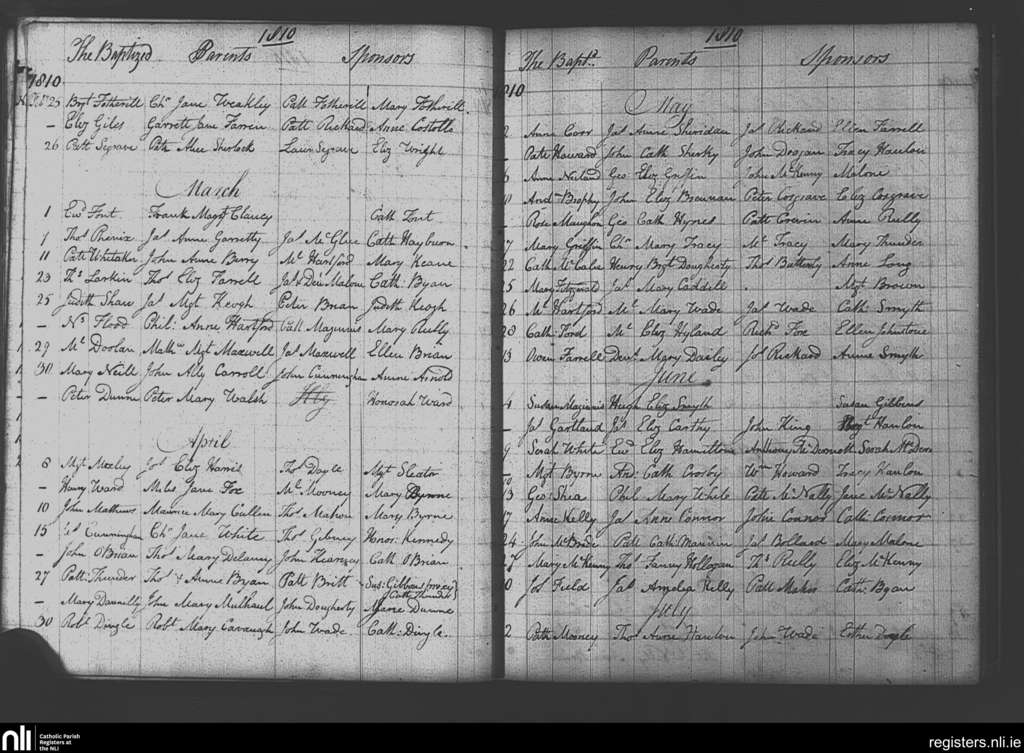 1810
The Baptized Parents Sponsors
1810
25 Bgt Fetherill Chr Jane Weakley Patt Fetherill Mary Fetherill
— Eliz Giles Garrett Jane Farren Patt Rickard Anne Costollo
26 Patt Segrave Patk Alice Sherlock Laur Segrave Eliz Wright
March
1 Ewd Font Frank Margt Clancy Cath Font
7 Thos Phenix Jas Anne Garretty Jas McGlue Cath Hayburn
11 Patt Whitaker John Anne Berry Ml Hartford Mary Keane
23 Ths Larkin Thos Eliz Farrell Jas & Den Malone Cath Byan
25 Judith Shaw Jas Mgt Keogh Peter Brian Judith Keogh
— Ns Flood Phil: Anne Hartford Patt Maginnis Mary Reilly
29 Ml Doolan Mathw Mgt Maxwell Jas Maxwell Ellen Brian
30 Mary Neill John Ally Carroll John Cunningham Anne Arnold
— Peter Dunne Peter Mary Walsh Honorah Ward
April
8 Mgt Meeley Jos Eliz Harris Thos Doyle Mgt Slator
— Henry Ward Miles Jane Fox Ml Mooney Mary Byrne
10 John Mathews Maurice Mary Cullen Thos Mahon Mary Byrne
15 Cunningham Chr Jane White Thos Gibney Honor: Kennedy
— John O'Brian Thos Mary Delaney John Hearney Cath O'Brian
27 Patt: Thunder Thos & Anne Byan Patt Britt Sus: Gibbons (proxy)
Cath Thunder
— Mary Dannilly John Mary Mulhall John Dougherty Marie Dunne
30 Robt Dingle Robt Mary Cavanagh John Wade Cath: Dingle
1810
The Bapt. Parents Sponsors
May
2 Anne Corr Jas Anne Sheridan Jas Rickard Ellen Farrell
— Patk Howard John Cath Sherky John Drogan Tracy Hanlon
Anne Geo Eliz Griffin John McKenny Malone
Andw Brophy John Eliz Brannan Peter Cosgrave Eliz Cosgrave
— Rose Maughan Geo Cath Hynes Patt Anne Reilly
17 Mary Griffin Chr Mary Tracy Ml Tracy Mary Thunder
22 Cath McCabe Henry Bgt Dougherty Thos Butterly Anne Long
25 Mary Fitzgerald Jas Mary Caddell Mgt Brown
26 Ml Hartford Ml Mary Wade Jas Wade Cath Smyth
28 Cath: Ford Ml Eliz Hyland Richd Fox Ellen Johnstone
13 Owen Farrell Dens Mary Dailey Jos Rickard Anne Smyth
June
4 Susan Maginnis Hugh Eliz Smyth Susan Gibbons
— Jas Gartland Jas Eliz Carthy John King Bgt Hanlon
9 Sarah White Ewd Eliz Hamiltone Anthony McDermott Sarah
— Mgt Byrne And: Cath Crosby Wm Howard Tracy Hanlon
13 Geo Shea Phil Mary White Patk McNally Jane McNally
17 Anne Kelly Jas Anne Connor John Connor Cath Connor
24 John McBride Patt Cath: Jas Bollard Mary Malone
27 Mary McKenny Thos Fanny Hollogan Ths Reilly Eliz McKenny
30 Jos Field Jas Amelia Kelly Patt Cath: Byan
July
2 Patk Mooney Thos Anne Hanlon John Wade Esther Doyle
nli
Catholic Parish
Registers at
the NLI
registers.nli.ie